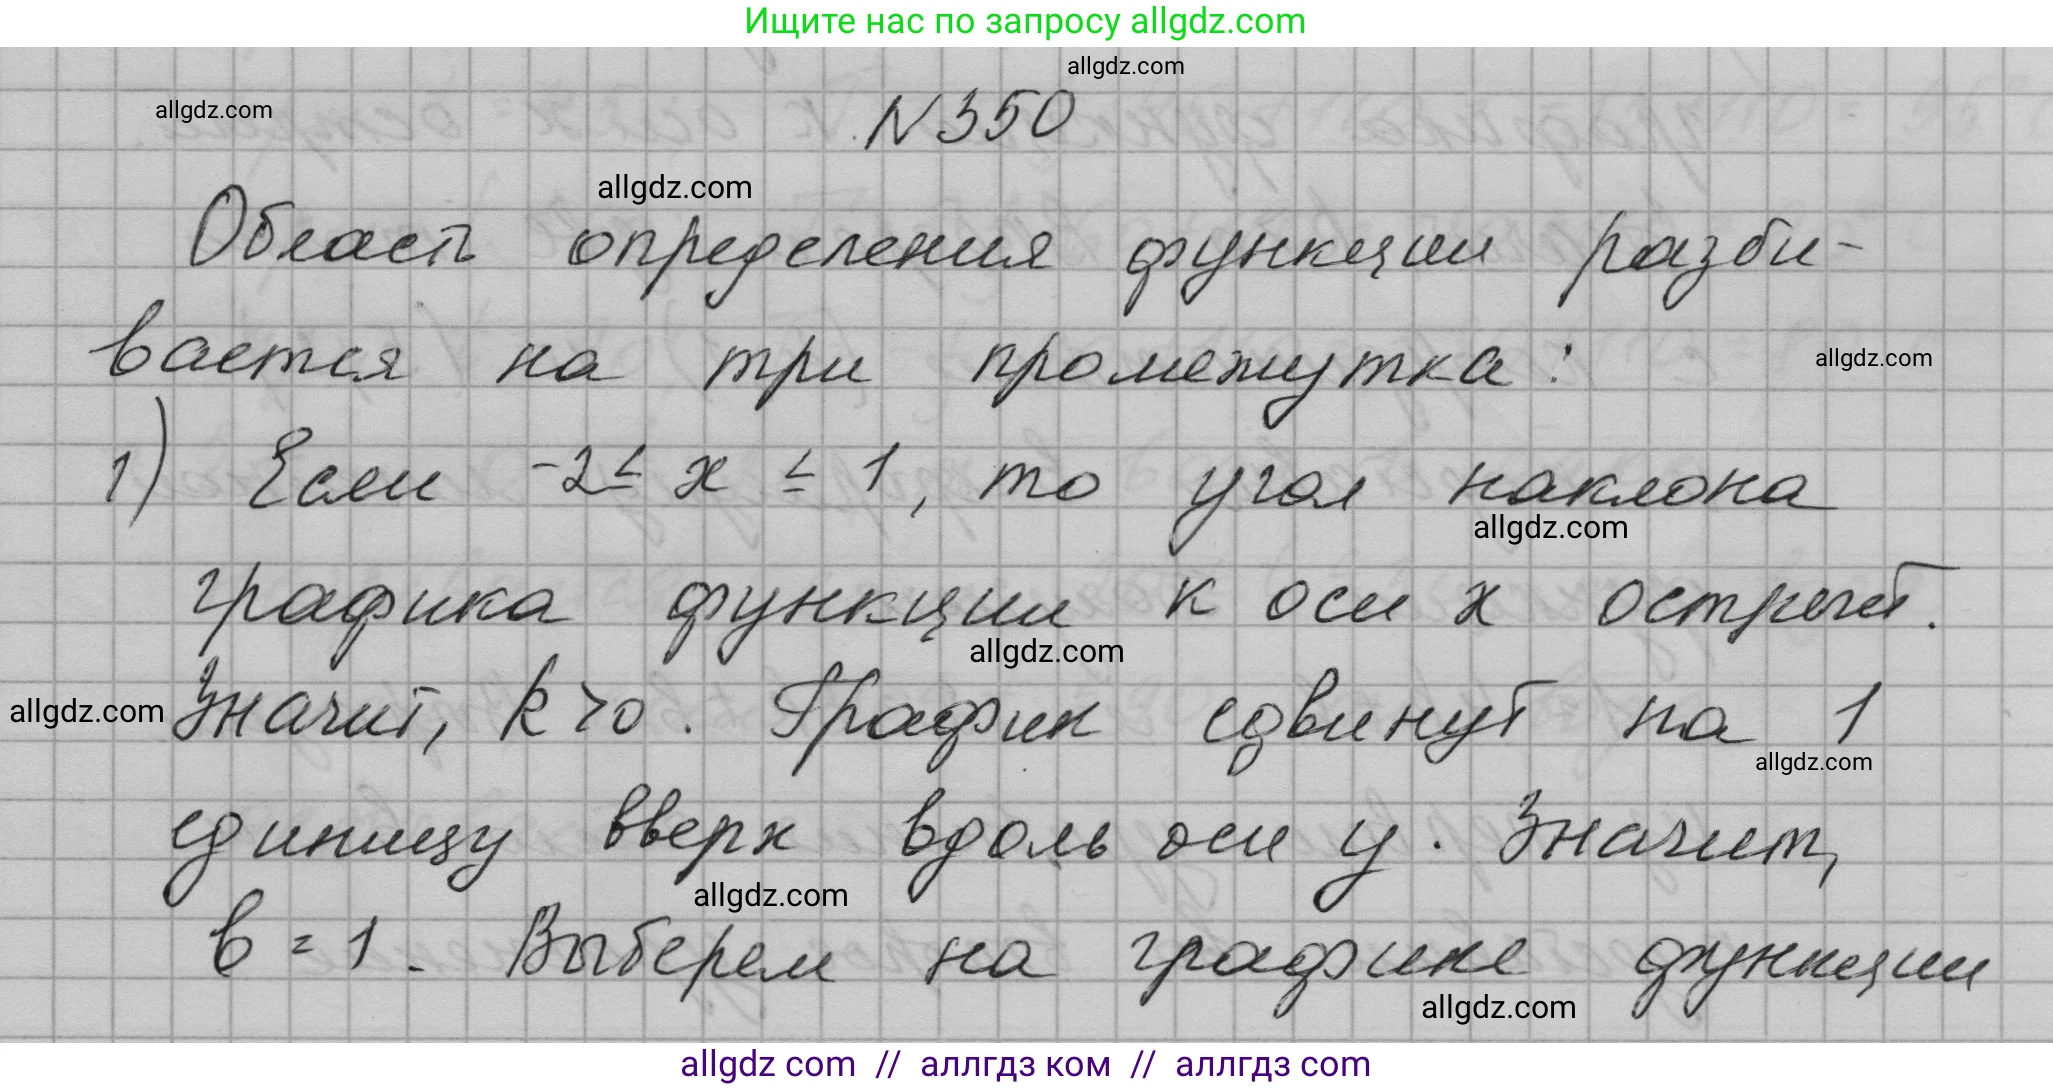 Ищите нас по запросу allgdz.com
allgdz.com
allgdz.com
N350
allgdz.com
Область определения функции разби-
вается на три промежутка:
allgdz.com
1) Если -2≤ x ≤ 1, то угол наклона
allgdz.com
графика функции к оси x острый.
allgdz.com
allgdz.com
Значит, k>0. График сдвинут на 1
allgdz.com
единицу вверх вдоль оси y. Значит,
allgdz.com
b=1. Выберем на графике функции
allgdz.com
allgdz com // аллгдз ком // аллгдз com